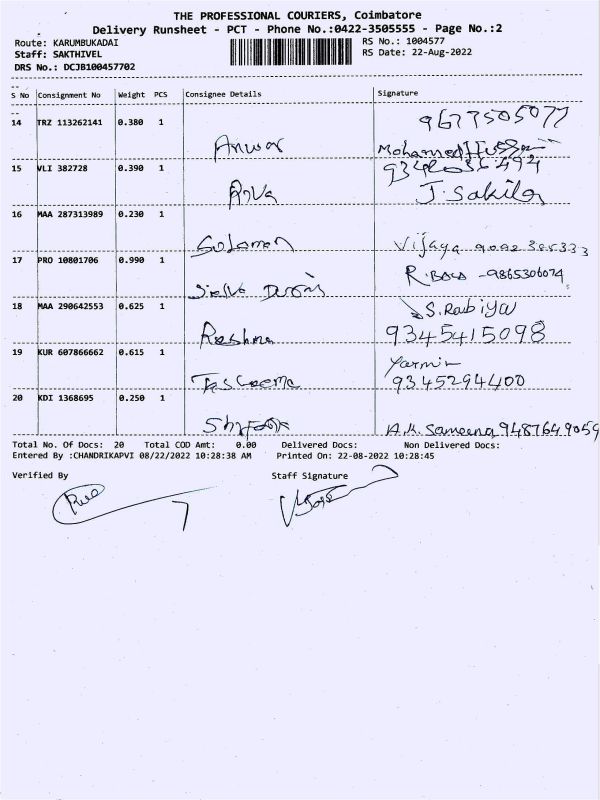 THE PROFESSIONAL COURIERS, Coimbatore
Delivery Runsheet - PCT - Phone No.:0422-3505555 - Page No.:2
Route: KARUMBUKADAI RS No.: 1004577
Staff: SAKTHIVEL RS Date: 22-Aug-2022
DRS No.: DCJB100457702
S No Consignment No Weight PCS Consignee Details Signature
14 TRZ 113262141 0.380 1 9677505077
Anwar Mohamed Hussain
15 VLI 382728 0.390 1
J. Sakila
16 MAA 287313989 0.230 1
Solomon Vijaya
17 PRO 10801706 0.990 1 R. -9865306074
18 MAA 290642553 0.625 1 S. Rabiya
Reshma 9345415098
19 KUR 607866662 0.615 1 Yasmin
9345294400
20 KDI 1368695 0.250 1
A.K. Sameena 9487649059
Total No. Of Docs: 20 Total COD Amt: 0.00 Delivered Docs: Non Delivered Docs:
Entered By :CHANDRIKAPVI 08/22/2022 10:28:38 AM Printed On: 22-08-2022 10:28:45
Verified By Staff Signature